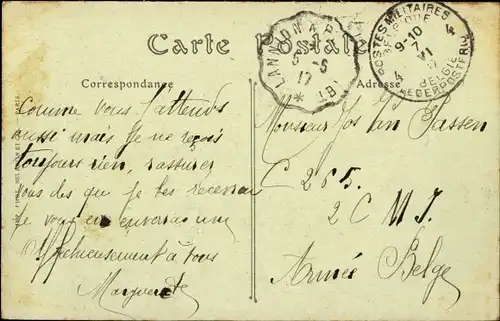 Carte Postale
LANNION A P
5-6
17
POSTES MILITAIRES
BELGIQUE
4 4
9-10
7
VI
BELGIË
LEGERPOSTERIJ
Correspondance
Adresse
Comme vous j'attends
aussi mais je ne reçois
toujours rien, rassurez
vous dès que je les recevrai
je vous en enverrai un
Affectueusement à vous
Marguerite
Monsieur Jos Van Passen
C 265.
2 C M I.
Armée Belge